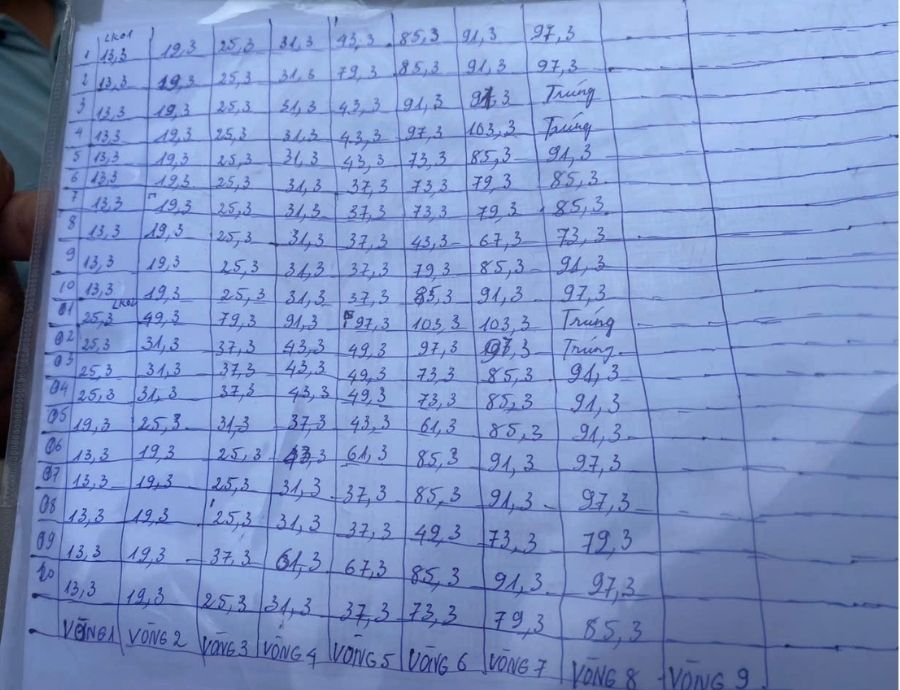 LK01
1 13,3 19,3 25,3 31,3 43,3 85,3 91,3 97,3
2 13,3 19,3 25,3 31,3 79,3 85,3 91,3 97,3
3 13,3 19,3 25,3 31,3 43,3 91,3 97,3 Trúng
4 13,3 19,3 25,3 31,3 43,3 97,3 103,3 Trúng
5 13,3 19,3 25,3 31,3 43,3 73,3 85,3 91,3
6 13,3 19,3 25,3 31,3 37,3 73,3 79,3 85,3
7 13,3 19,3 25,3 31,3 37,3 73,3 79,3 85,3
8 13,3 19,3 25,3 31,3 37,3 43,3 67,3 73,3
9 13,3 19,3 25,3 31,3 37,3 79,3 85,3 91,3
10 13,3 19,3 25,3 31,3 37,3 85,3 91,3 97,3
LK02
01 25,3 49,3 79,3 91,3 97,3 103,3 103,3 Trúng
02 25,3 31,3 37,3 43,3 49,3 97,3 97,3 Trúng
03 25,3 31,3 37,3 43,3 49,3 73,3 85,3 91,3
04 25,3 31,3 37,3 43,3 49,3 73,3 85,3 91,3
05 19,3 25,3 31,3 37,3 43,3 61,3 85,3 91,3
06 13,3 19,3 25,3 43,3 61,3 85,3 91,3 97,3
07 13,3 19,3 25,3 31,3 37,3 85,3 91,3 97,3
08 13,3 19,3 25,3 31,3 37,3 49,3 73,3 79,3
09 13,3 19,3 37,3 61,3 67,3 85,3 91,3 97,3
10 13,3 19,3 25,3 31,3 37,3 73,3 79,3 85,3
VÒNG1 VÒNG 2 VÒNG 3 VÒNG 4 VÒNG 5 VÒNG 6 VÒNG 7 VÒNG 8 VÒNG 9